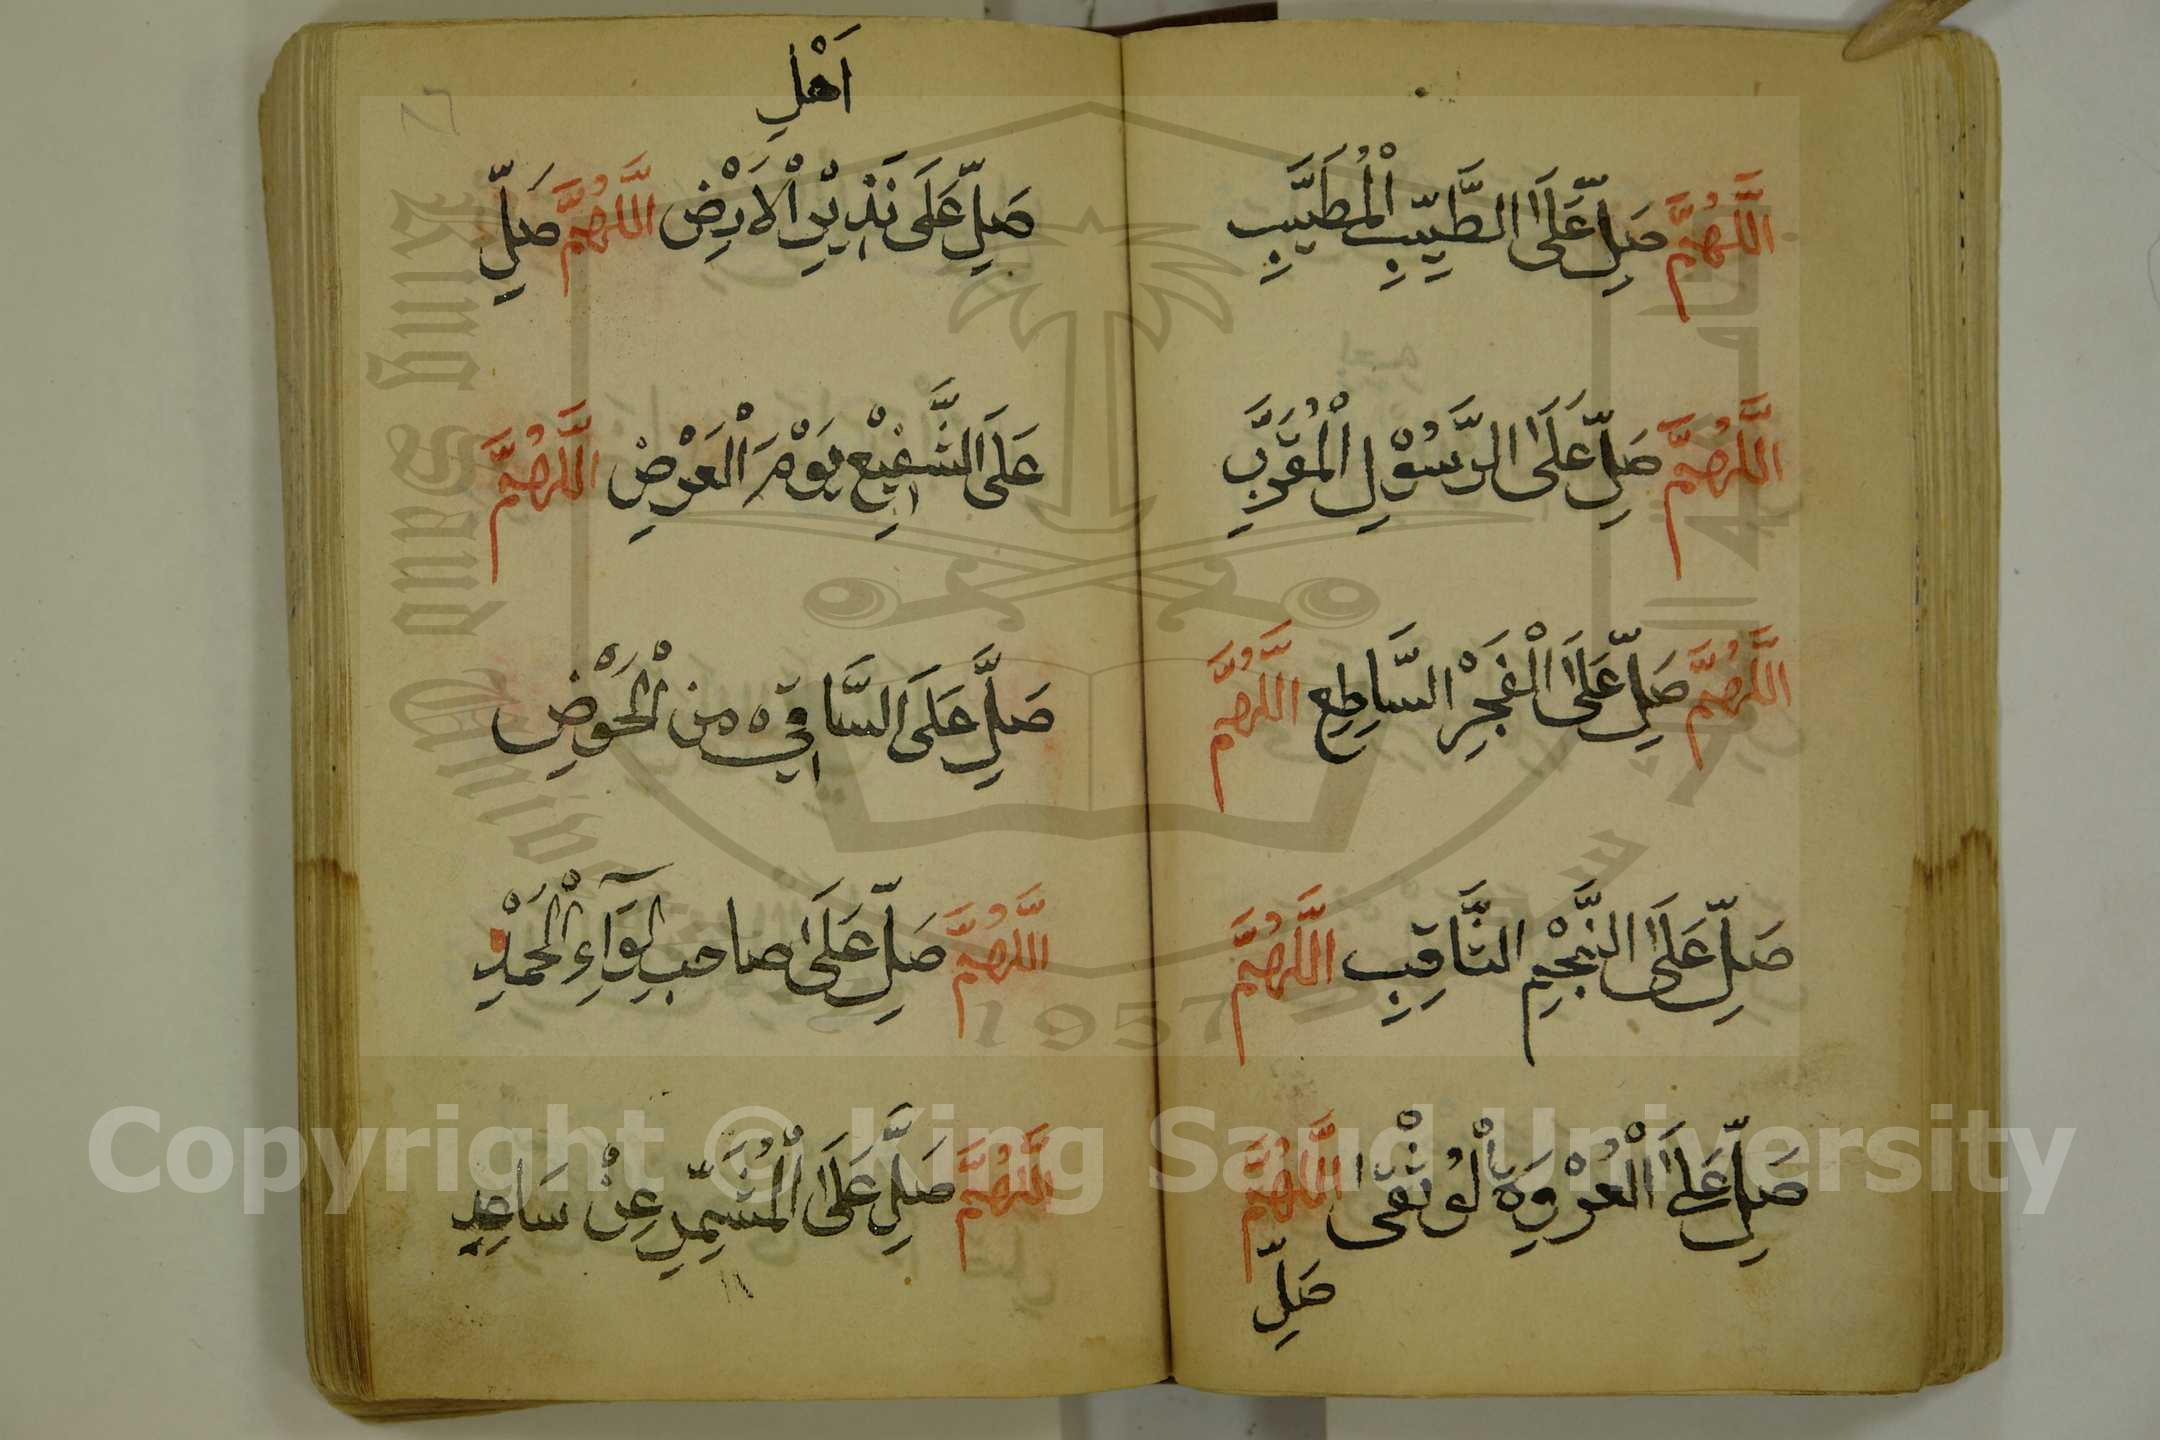 اَللّٰهُمَّ صَلِّ عَلَى الطَّيِّبِ الْمُطَيَّبِ
اَللّٰهُمَّ صَلِّ عَلَى الرَّسُوْلِ الْمُقَرَّبِ
اَللّٰهُمَّ صَلِّ عَلَى الْفَجْرِ السَّاطِعِ اَللّٰهُمَّ
صَلِّ عَلَى النَّجْمِ الثَّاقِبِ اَللّٰهُمَّ
صَلِّ عَلَى الْعُرْوَةِ الْوُثْقَى اَللّٰهُمَّ
صَلِّ
اَهْلِ
صَلِّ عَلَى نَذِيْرِ الْاَرْضِ اَللّٰهُمَّ صَلِّ
عَلَى الشَّفِيْعِ يَوْمَ الْعَرْضِ اَللّٰهُمَّ
صَلِّ عَلَى السَّاقِي مِنَ الْحَوْضِ
اَللّٰهُمَّ صَلِّ عَلَى صَاحِبِ لِوَآءِ الْحَمْدِ
اَللّٰهُمَّ صَلِّ عَلَى الْمُشَمِّرِ عَنْ سَاعِدِ
King Saud Unive
1957
Copyright © King Saud University